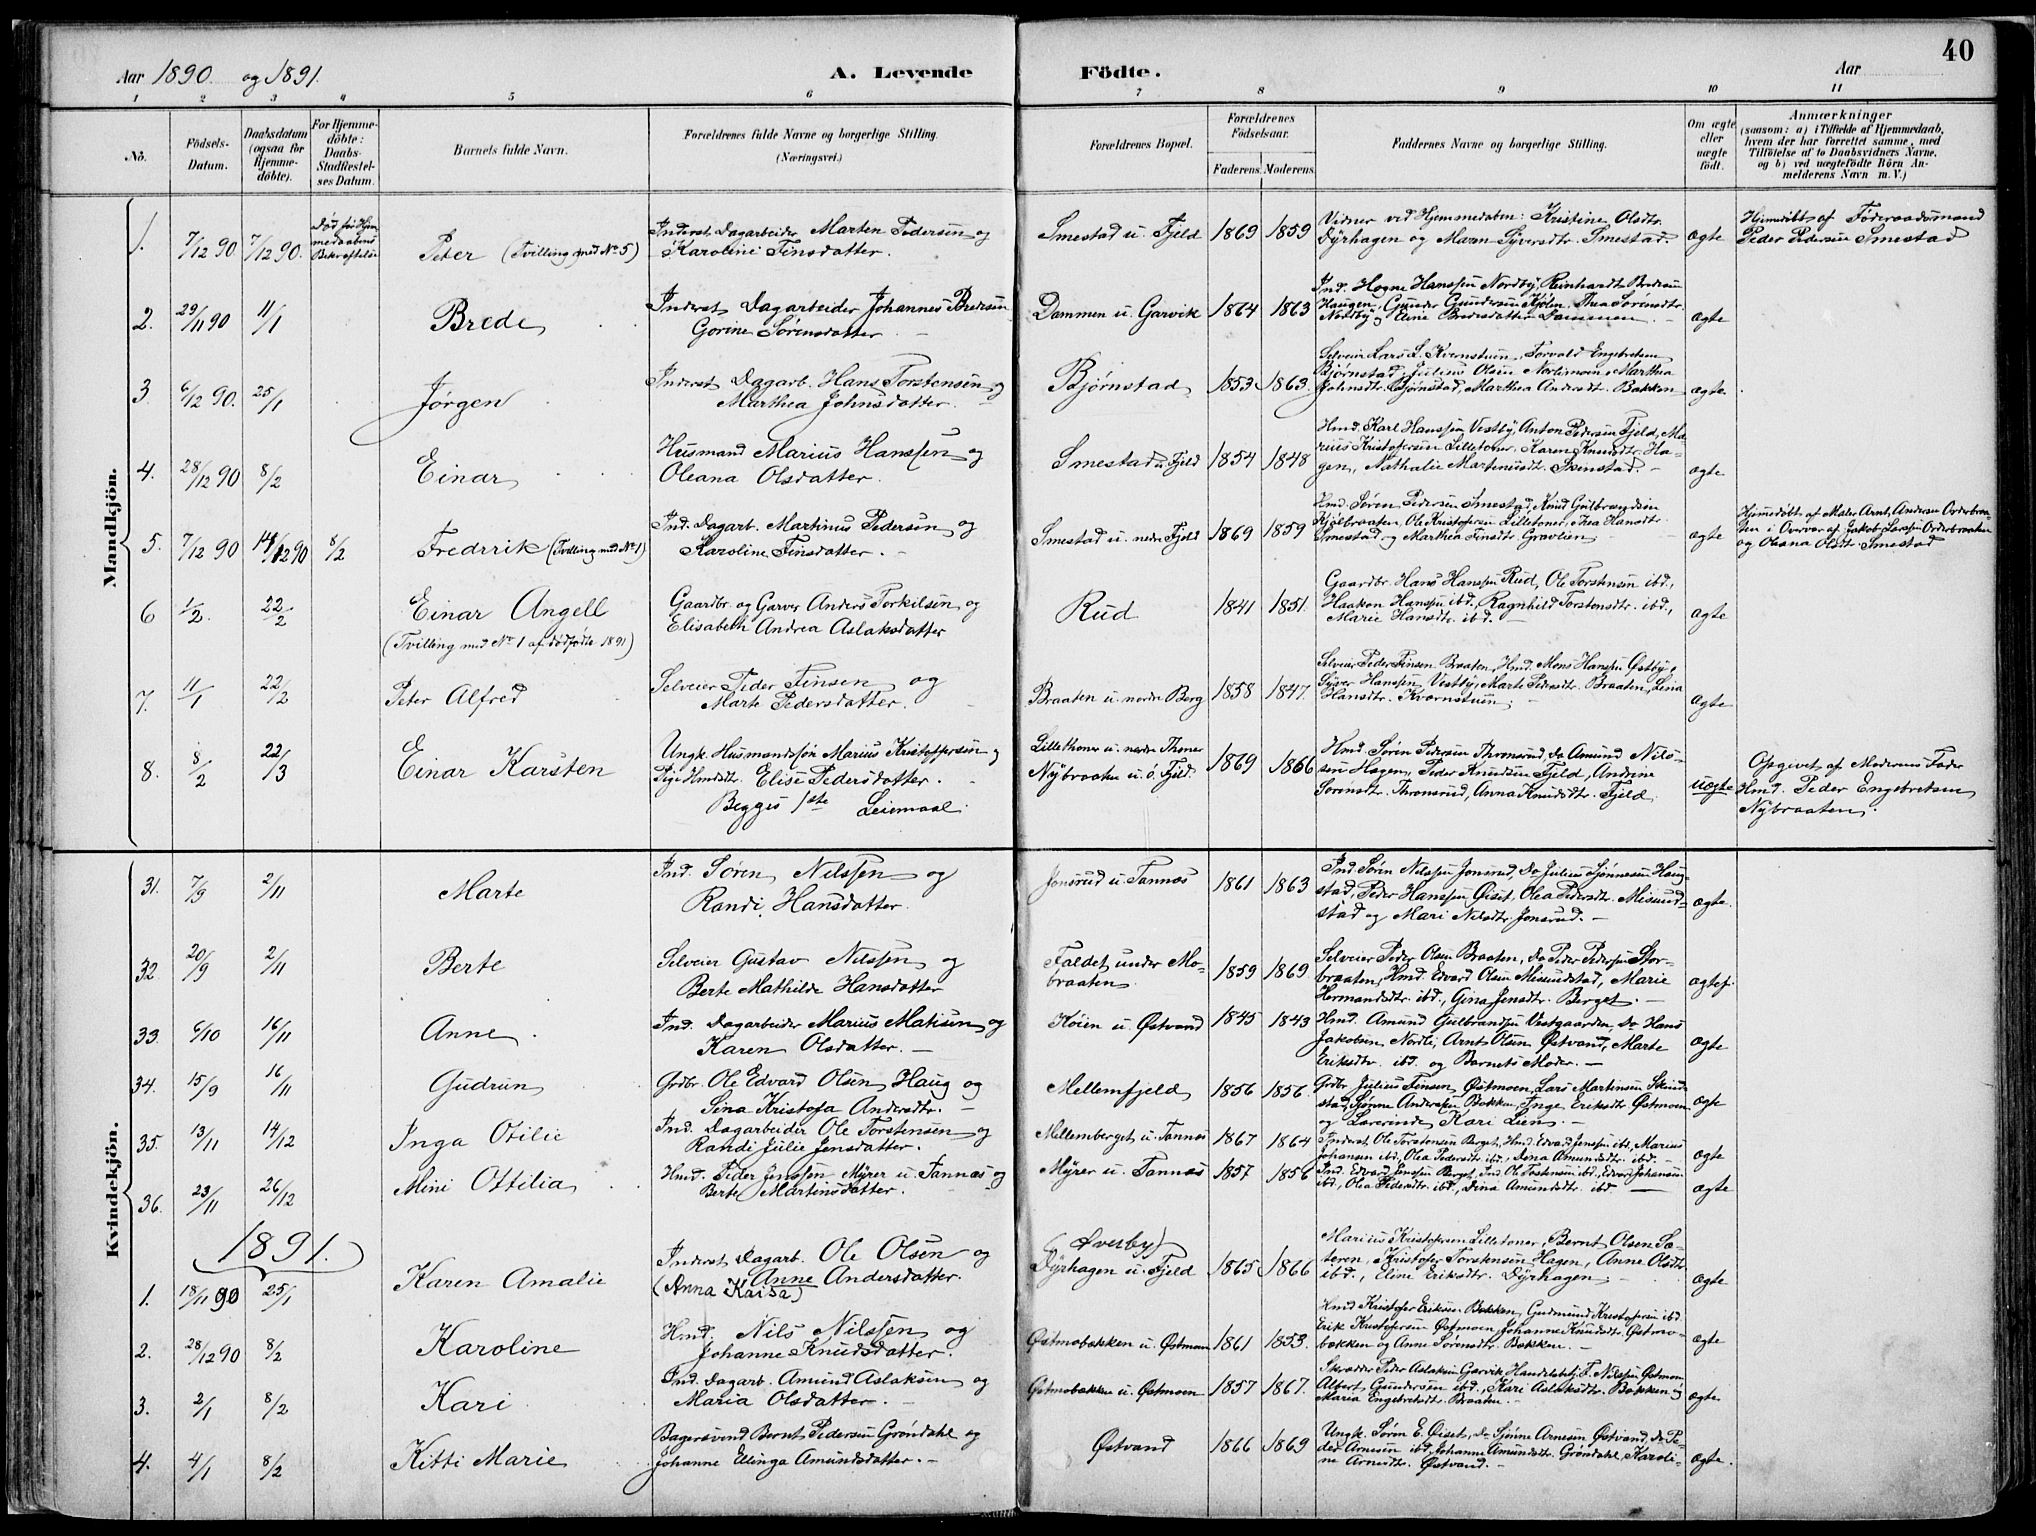 Aar 1890. og 1891.
A. Levende Födte.
Aar
40
1 2 3 4 5 6 7 8 9 10 11
No.
Födsels-Datum.
Daabsdatum (ogsaa for Hjemme-döbte).
For Hjemme-döbte: Daabs-Stadfestel-ses Datum.
Barnets fulde Navn.
Forældrenes fulde Navne og borgerlige Stilling.
(Næringsvei.)
Forældrenes Bopæl.
Forældrenes Födselsaar.
Faderens. Moderens.
Faddernes Navne og borgerlige Stilling.
Om ægte eller uægte födt.
Anmærkninger
(saasom: a) i Tilfælde af Hjemmedaab,
hvem der har forrettet samme, med
Tilföielse af to Daabsvidners Navne,
og b) ved uægtefödte Börn An-
melderens Navn m. V.)
Mandkjön.
1. 7/12 90. 7/12 90. Död før Hjem-
medaabens
Bekræftelse
Peter (Tvilling med No 5)
Inderst Dagarbeider Marten Pedersen og
Karoline Finsdatter.
Smestad u. Fjeld 1869 1859
Vidner ved Hjemmedaben: Kristine Olsdtr.
Dyrhagen og Maren Syversdtr. Smestad.
ægte
Hjemedöbt af Föderaadsmand
Peder Pedersen Smestad
2. 29/11 90 11/1 Brede
Inderst Dagarbeider Johannes Bredesen
Gorine Sørensdatter
Dammen u. Garvik 1864 1863
Ind. Hogne Hanssen Nordby, Reinhardt Bredesen
Haugen, Gunder Gundersen Kjølen, Thea Sørensdtr.
Nordby og Eline Bredesdatter Dammen.
ægte
3 6/12 90. 25/1 Jørgen
Inderst Dagarb. Hans Torstensen og
Marthea Johnsdatter.
Bjørnstad 1853 1863.
Selveier Lars L. Kvernstuen, Torvald Engebretsen
Bjørnstad, Julius Olsen Nordmoen, Marthea
Johnsdtr. Bjørnstad, Marthea Andersdt. Bakken
ægte
4. 28/12 90 8/2 Einar
Husmand Marius Hanssen og
Oleana Olsdatter.
Smestad u. Fjeld 1854 1848
Hmd. Karl Hanssen Vestby, Anton Pedersen Fjeld, Ma-
rius Kristofersen Lilletoner, Karen Knudsdtr. Ha-
gen, Nathalie Martinusdt. Skinstad
ægte
5. 7/12 90 14/12 90 8/2 Fredrik (Tvilling med No 1)
Ind. Dagarb. Martinus Pedersen og
Karoline Finsdatter.
Smestad u. nedre Fjeld 1869 1859
Hmd. Søren Pedersen Smestad, Knud Gulbrandsen
Kjølbraaten, Ole Kristofersen Lilletoner, Thea Hansdtr.
Smestad og Marthea Finsdtr. Gravlien
ægte
Hjemedöbt af Maler Arnt Andersen Orderbraa-
ten i Overvær af Jakob Larssen Orderbraaten
og Oleana Olsdtr. Smestad
6 1/2. 22/2 Einar Angell
(Tvilling med No 1 af dødfødte 1891)
Gaardbr. og Garver Anders Torkilsen og
Elisabeth Andrea Aslaksdatter
Rud 1841 1851.
Gaardbr. Hans Hanssen Rud, Ole Torstensen ibd.,
Haakon Hanssen ibd., Ragnhild Torstensdtr. ibd.,
Marie Hansdtr. ibd.
ægte
7. 11/1 22/2 Peter Alfred
Selveier Peder Finsen og
Marte Pedersdatter.
Braaten u. nordre Berg 1858 1847.
Selveier Peder Finsen Braaten, Hmd. Mons Hanssen Østby,
Syver Hanssen Vestby, Marte Pedersdtr. Braaten, Lena
Hansdtr. Kvernstuen.
ægte
8. 8/2 22/3 Einar Karsten
Ungk. Husmandssøn Marius Kristoffersen og
Pige Hmdsdtr. Elise Pedersdatter.
Begges 1ste Leiemaal.
Lillethoner u. nedre Thoner
Nybraaten u. ö. Fjeld. 1869 1866
Hmd. Søren Pedersen Thronsrud, Do Amund Nils-
sen Hagen, Peder Knudsen Fjeld, Andrine
Sørensdtr. Thronsrud, Anna Knudsdtr. Fjeld
uægte
Opgivet af Moderens Fader
Hmd. Peder Engebretsen
Nybraaten.
Kvindekjön.
31. 7/9 2/11 Marte
Ind. Søren Nilssen og
Randi Hansdatter.
Jonsrud u. Tannæs 1861 1863
Ind. Søren Nilssen Jonsrud, Do Julius Sjønnesen Haug-
stad, Peder Hanssen Øiset, Olea Pedersdtr. Misund-
stad og Mari Nilsdtr. Jonsrud.
ægte.
32. 20/9 2/11 Berte
Selveier Gustav Nilssen og
Berte Mathilde Hansdatter
Faldet under Mo-
braaten 1859 1869
Selveier Peder Olsen Braaten, Do Peder Pedersen Stor-
braaten, Hmd. Edvard Olsen Misundstad, Marie
Hermandsdtr. ibd., Gina Jensdtr. Berget.
ægtef.
33. 6/10 16/11 Anne
Ind. Dagarbeider Marius Matisen og
Karen Olsdatter.
Koien u. Østvand 1845 1843
Hmd. Amund Gulbrandsen Vestgaarden, Do Hans
Jakobsen Nordli, Arnt Olsen Østvand, Marte
Eriksdtr. ibd. og Barnets Moder.
ægte
34. 15/9 16/11 Gudrun
Grdbr. Ole Edvard Olsen Haug og
Sina Kristofa Andersdtr.
Mellemfjeld 1856 1856.
Grdbr. Julius Finsen Østmoen, Lars Martinsen Skind-
stad, Sjønne Andersen Bakken, Inge Eriksdtr. Østmoen
og Lærerinde Kari Lien.
ægte
35. 13/11 14/12 Inga Otilie
Ind. Dagarbeider Ole Torstensen og
Randi Julie Jensdatter.
Mellemberget u. Tannæs 1867 1864
Inderst Ole Torstensen Berget, Hmd. Edvard Jenssen ibd., Marius
Johansen ibd. Olea Pedersdtr. ibd., Dena Amundsdtr. ibd.
ægte
36. 23/11 26/12 Mini Ottilia
Hmd. Peder Jenssen Myrer u. Tannæs og
Berte Martinsdatter.
Myrer u. Tannæs 1857 1856
Ind. Edvard Jenssen Berget, Ind. Ole Torstensen ibd., Edvard Johansen
ibd., Olea Pedersdtr. ibd., Dina Amundsdtr. ibd.
ægte
1891.
1. 18/11 90 25/1 Karen Amalie
Inderst Dagarb. Ole Olsen og
Anne Andersdatter.
(Anna Kaisa)
(Øvesby)
Dyrhagen u. Fjeld 1865 1866
Marius Kristofersen Lilletoner, Bernt Olsen Sæ-
teren, Kristofer Torstensen Hagen, Anne Olsdtr.
ibd., Eline Eriksdtr. Dyrhagen
ægte
2. 28/12 90 8/2 Karoline
Hmd. Nils Nilssen og
Johanne Knudsdatter.
Østmobækken u. Østmoen 1861 1853.
Hmd Kristofer Eriksen Bækken, Gudmund Kristofersen ibd.
Erik Kristofersen Østmoen, Johanne Knudsdtr. Østmo-
bækken og Anne Sørensdtr. Bækken.
ægte
3. 2/1 8/2 Kari
Ind. Dagarb. Amund Aslaksen og
Maria Olsdatter.
Østmobækken u. Østmoen 1857 1867.
Skrædder Peder Aslaksen Garvik, Handelsbtj. F. Nilssen Østmoen,
Albert Gundersen ibd., Kari Aslaksdtr. Bækken og
Maria Engebretsdtr. Braaten.
ægte
4. 4/1 8/2 Kitti Marie
Bagersvend Bernt Pedersen Grøndahl og
Johanne Ellinga Amundsdatter.
Østvand 1866 1869
Ungk. Søren E. Øiset, Do Sjønne Arnesen Østvand, Do Pe-
der Arnesen ibd., Johanne Amundsdtr. Grøndahl, Karoli-
ne Arnesdtr. Østvand.
ægte.